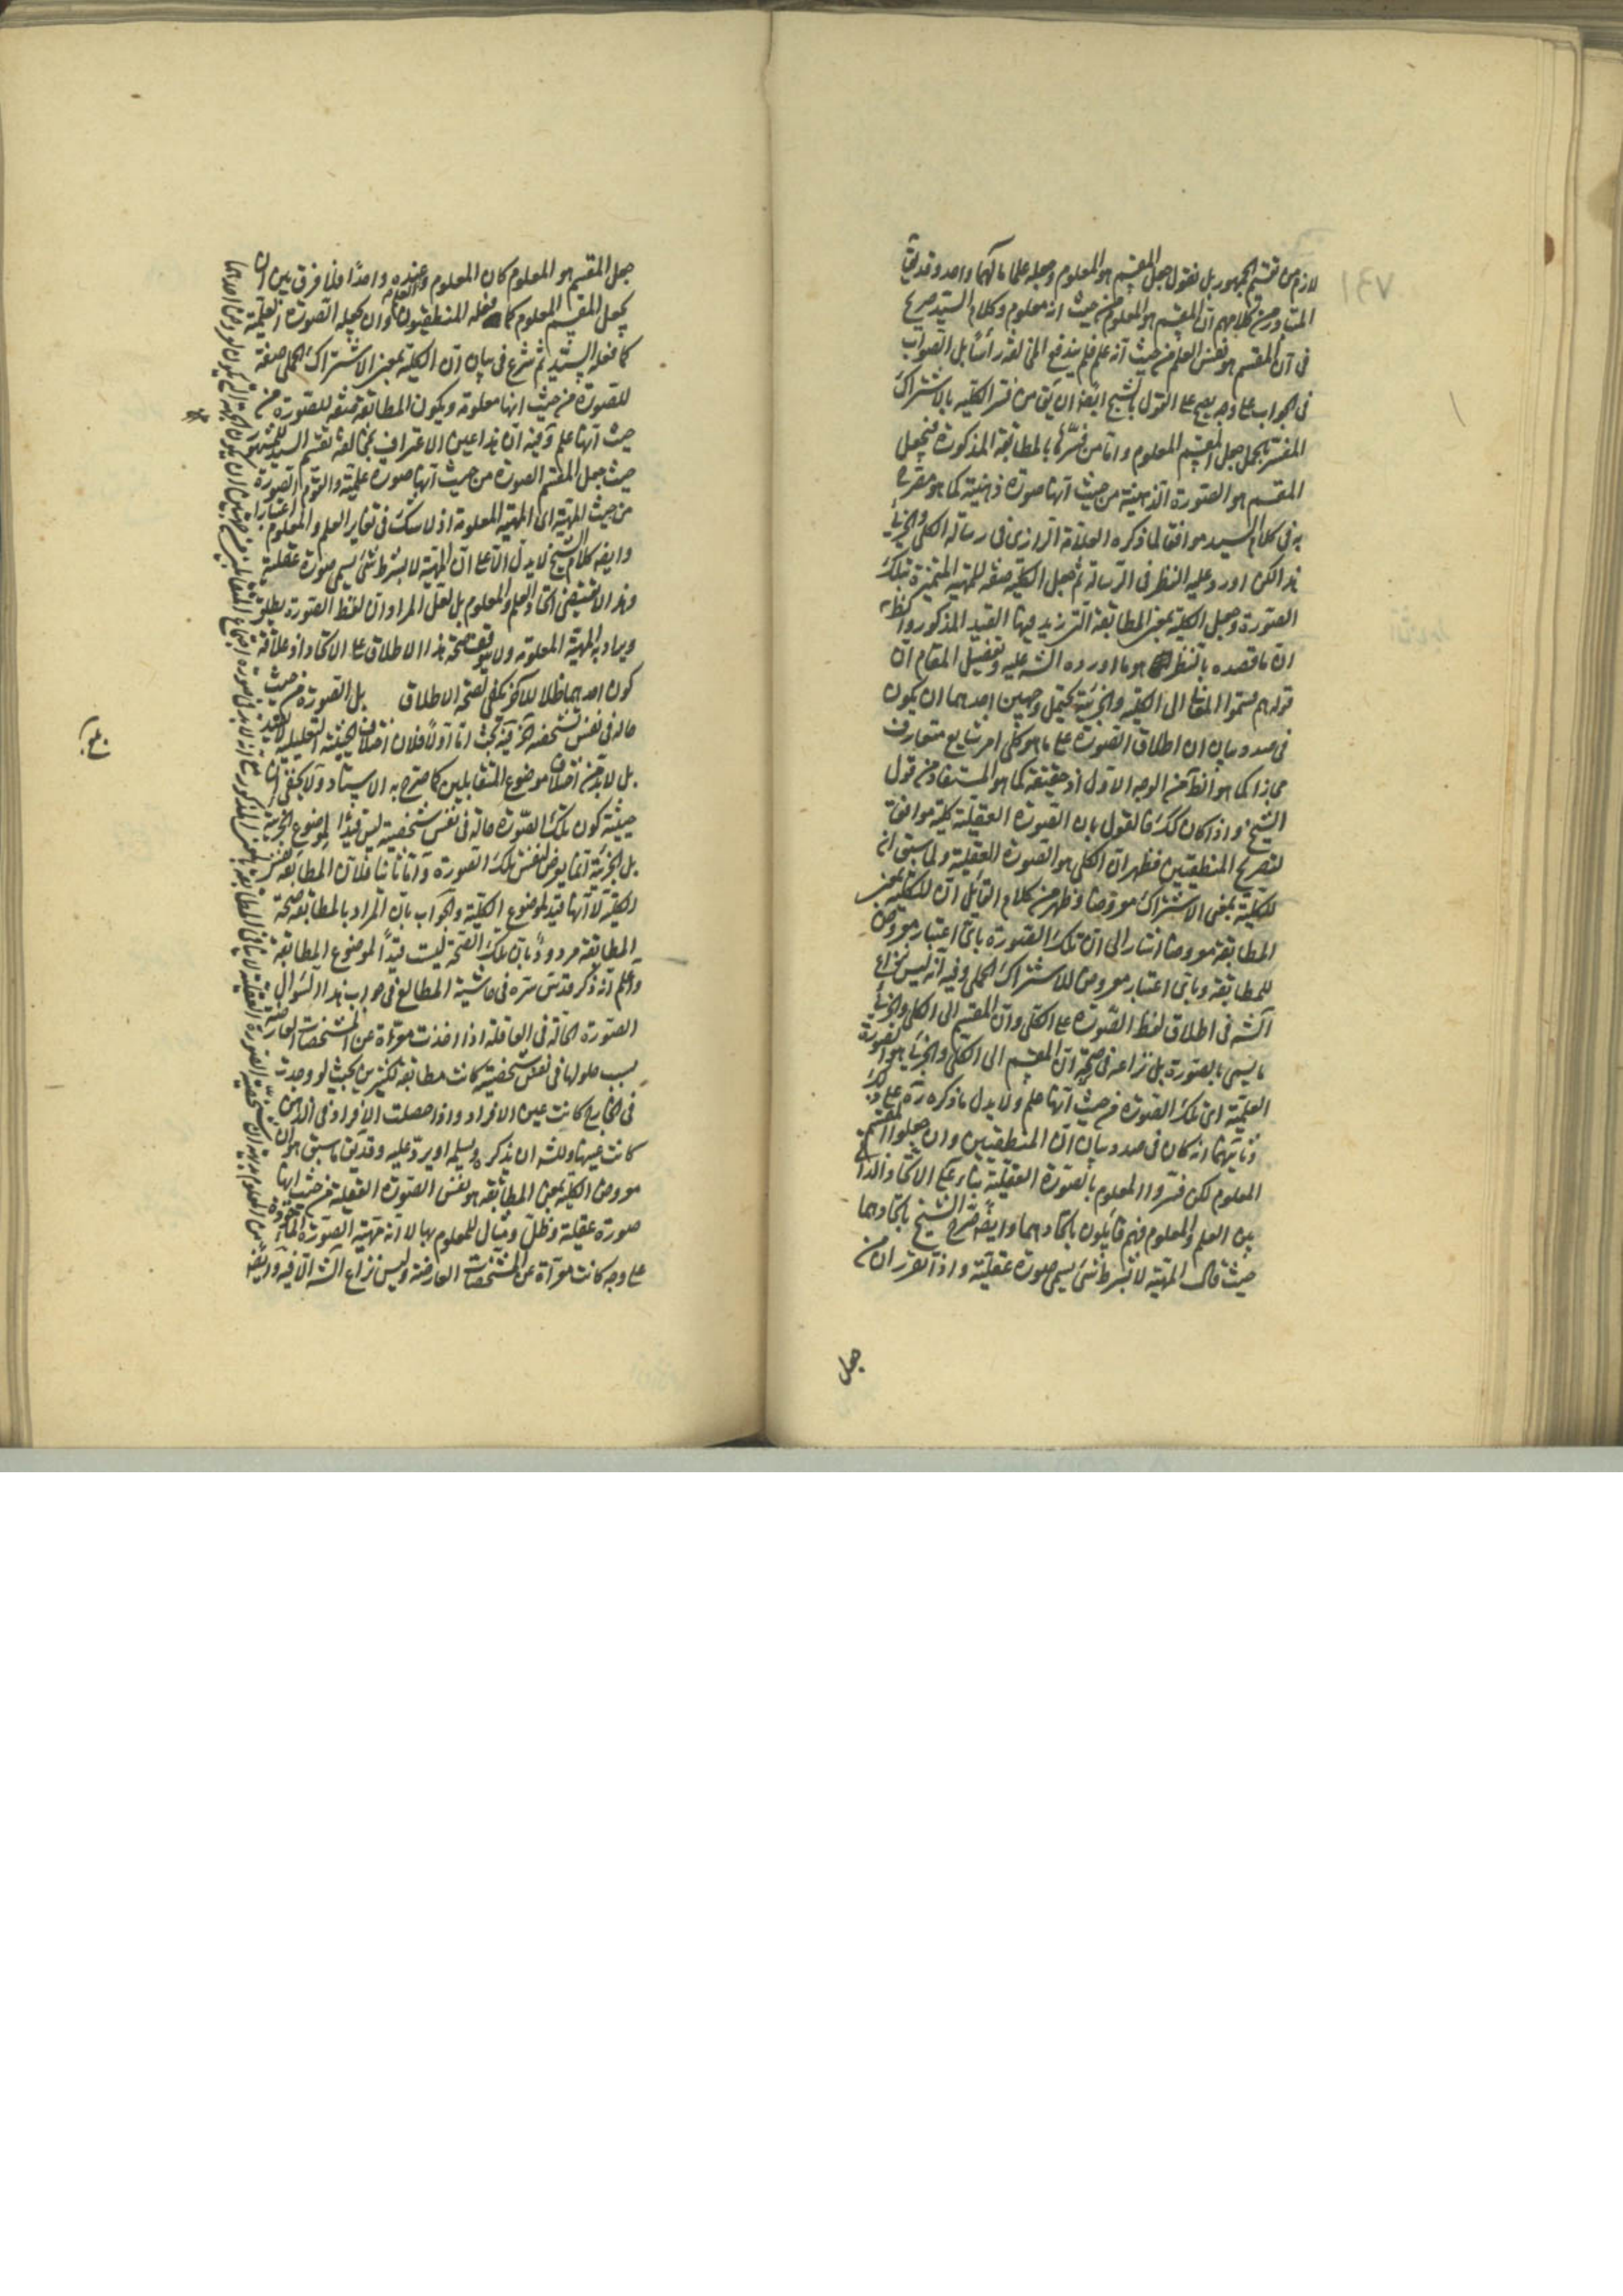 لازم من تقسيم الجمهور بل نقول جعل المقسم هو المعلوم وجعله علما مآلهما واحد وقد يق
المتبادر من كلامهم ان المقسم هو المعلوم من حيث انه معلوم وكلام السيد صريح
فى ان المقسم هو نفس العلم من حيث انه علم فلم يندفع المخالفة رأسا بل الصواب
فى الجواب على وجه يصح على القول بالشبح ايضا ان يق من فسر الكلية بالاشتراك
المفسر بالحمل جعل المقسم المعلوم واما من فسرها بالمطابقة المذكورة فيجعل
المقسم هو الصورة الذهنية من حيث انها صورة ذهنية كما هو مصرح
به فى كلام السيد موافقا لما ذكره العلامة الرازى فى رسالة الكلى والجزئى
هذا لكن اورد عليه النظر فى الرسالة ثم جعل الكلية صفة للمهية المتميزة بتلك
الصورة وجعل الكلية بمعنى المطابقة التى زيد فيها القيد المذكور والظ
ان ما قصده بالنظر هو ما اورده الشه عليه وتفصيل المقام ان
قولهم قسموا المعانى الى الكلية والجزئية يحتمل وجهين احدهما ان يكون
فى صدد بيان ان اطلاق الصورة على ما هو كلى امر شايع متعارف
مجازا كما هو الظ من الوجه الاول او حقيقة كما هو المستفاد من قول
الشيخ واذا كان كك فالقول بان الصورة العقلية كلية موافق
لتصريح المنطقيين فظهر ان الكلى هو الصورة العقلية ولما سبق ان
للكلية بمعنى الاشتراك معروضا وظهر من كلام القائل ان للكلية بمعنى
المطابقة معروضا اشار الى ان تلك الصورة باى اعتبار معروض
للمطابقة وباى اعتبار معروض للاشتراك الحملى وفيه انه ليس نزاع
الشه فى اطلاق لفظ الصورة على الكلى وان المقسم الى الكلى والجزئى
ما يسمى بالصورة بل نزاعه فى صحة ان المقسم الى الكلى والجزئى هو الصورة
العلمية اى تلك الصورة من حيث انها علم ولا يدل ما ذكره ره على ذلك
وثانيهما انه كان فى صدد بيان ان المنطقيين وان جعلوا المقسم
المعلوم لكن فسروا المعلوم بالصورة العقلية بناء على الاتحاد الذاتى
بين العلم والمعلوم فهم قايلون باتحادهما وايضا صرح الشيخ باتحادهما
حيث قال المهية لا بشرط شئ يسمى صورة عقلية واذا تقرر ان من
جعل
جعل المقسم هو المعلوم كان المعلوم والعلم عنده واحدا فلا فرق بين ان
يجعل المقسم المعلوم كما فعله المنطقيون وان يجعله الصورة العلمية
كما فعله السيد ثم شرع فى بيان ان الكلية بمعنى الاشتراك الحملى صفة
للصورة من حيث انها معلومة ويكون المطابقة صفة للصورة من
حيث انها علم وفيه ان هذا عين الاعتراف بمخالفة تقسيم السيد للمشهور
حيث جعل المقسم الصورة من حيث انها صورة علمية والقوم الصورة
من حيث المهية اى المهية المعلومة اذ لا شك فى تغاير العلم والمعلوم اعتبارا
وايضا كلام الشيخ لا يدل الا على ان المهية لا بشرط شئ يسمى صورة عقلية
وهذا لا يقتضى اتحاد العلم والمعلوم بل لعل المراد ان لفظ الصورة يطلق
ويراد به المهية المعلومة ولا يتوقف صحة هذا الاطلاق على الاتحاد اذ علاقة
كون احدهما ظلا للآخر يكفى لصحة الاطلاق بل الصورة من حيث
حالة فى نفس شخصية آه فيه بحث اما اولا فلان اختلاف الحيثية التعليلية لا يفيد
بل لا بد من اختلاف موضوع المتقابلين كما صرح به الاستاد ولا يخفى ان
حيثية كون تلك الصورة حالة فى نفس شخصية ليس قيدا لموضوع الجزئية
بل الجزئية انما يعرض لنفس تلك الصورة واما ثانيا فلان المطابقة نفس
الكلية لا انها قيد لموضوع الكلية والجواب بان المراد بالمطابقة صحة
المطابقة مردود بان تلك الصحة ليست قيدا لموضوع المطابقة
واعلم انه ذكر قدس سره فى حاشية المطالع فى جواب هذا السؤال
الصورة الحالة فى العاقلة اذا اخذت معراة عن المشخصات العارضة
بسبب حلولها فى نفس شخصية كانت مطابقة لكثيرين بحيث لو وجدت
فى الخارج كانت عين الافراد واذا حصلت الافراد فى الذهن
كانت عينها وللشه ان يذكر وليسلمه او يرد عليه وقد يق ما سبق هو ان
معروض الكلية بمعنى المطابقة هو نفس الصورة العقلية من حيث انها
صورة عقلية وظل ومثال للمعلوم بها لا انه مهية الصورة المأخوذة
على وجه كانت معراة عن المشخصات العارضة وليس نزاع الشه الا فيه وايضا